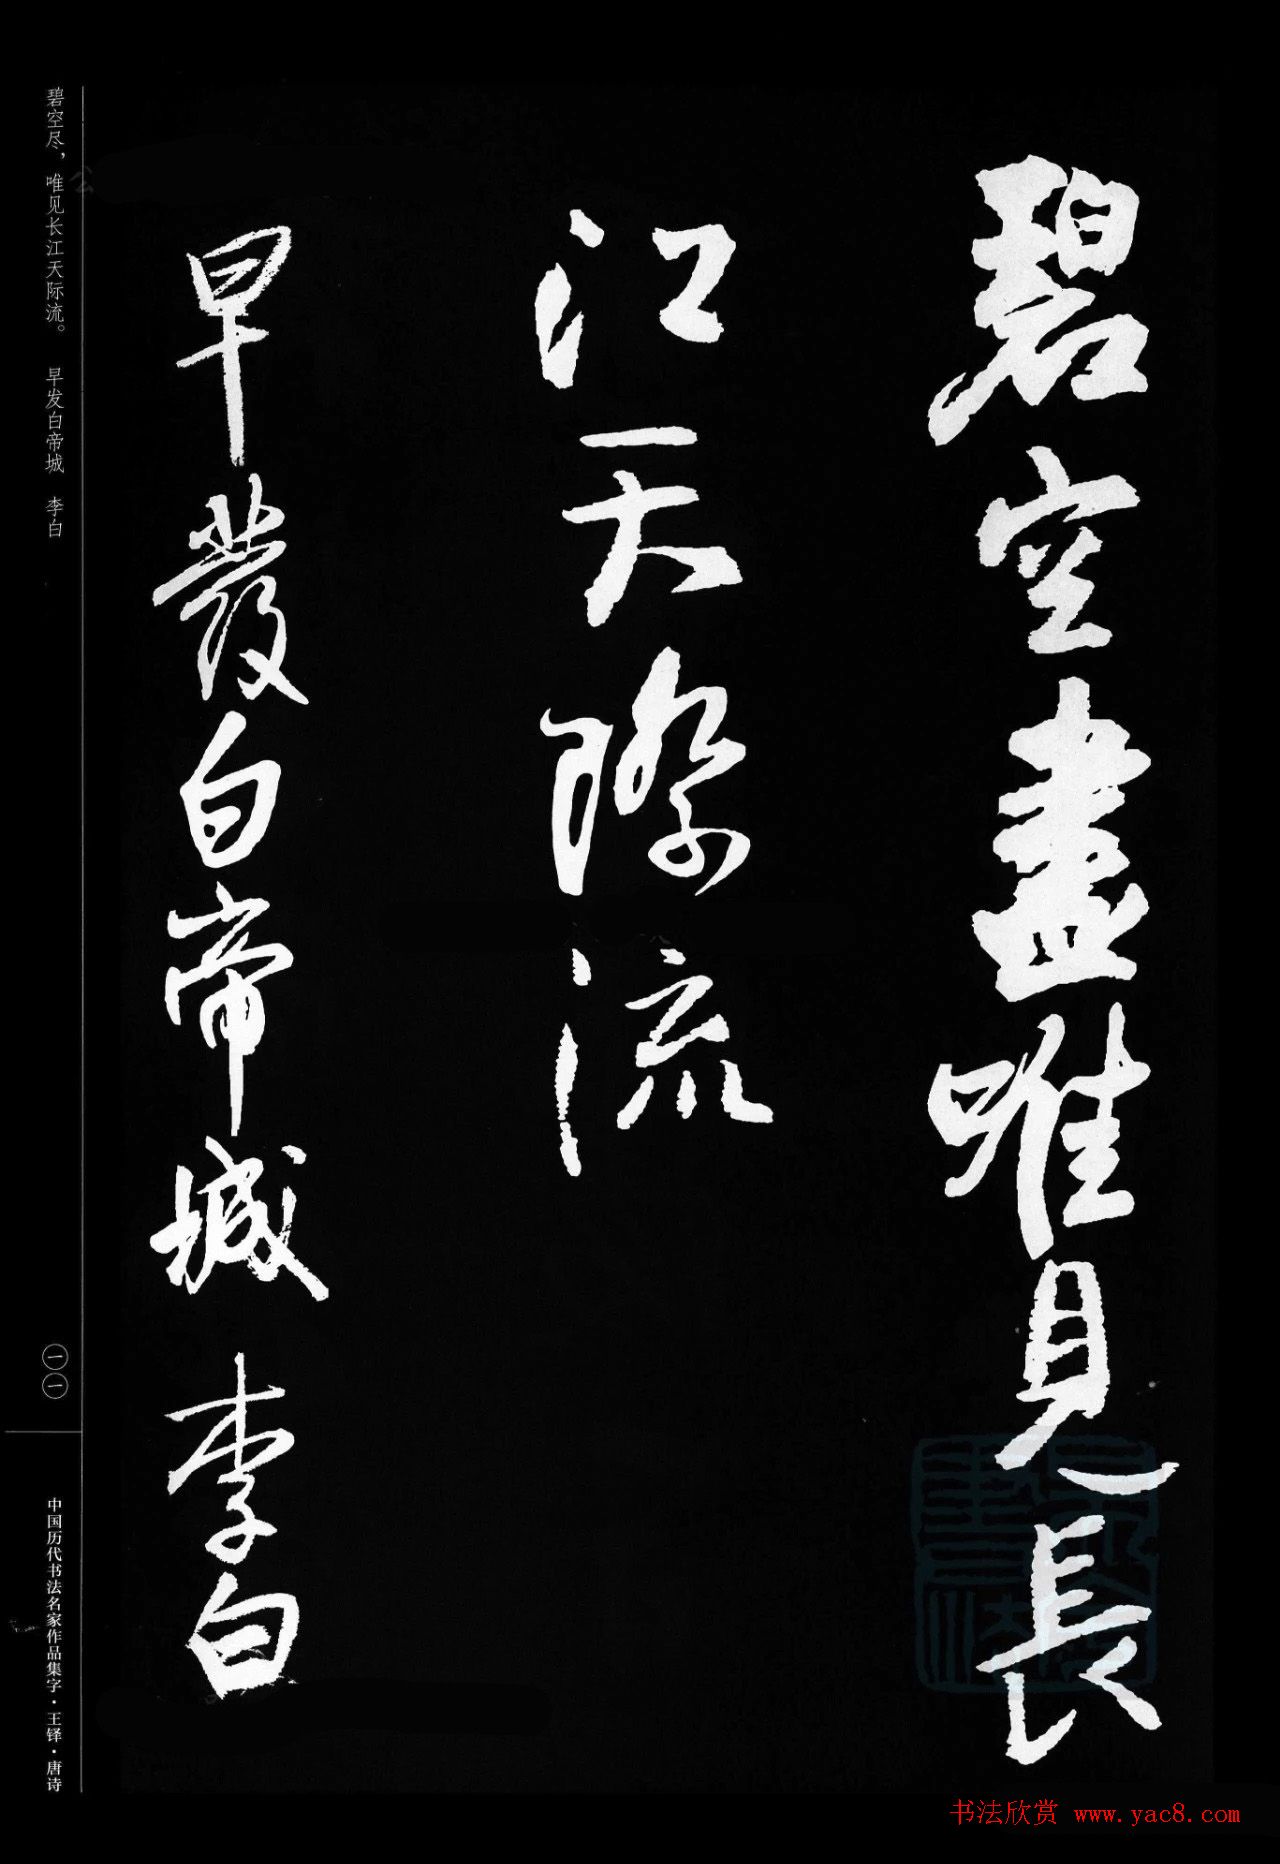 碧空盡唯見長
江天際流
早發白帝城 李白
碧空尽，唯见长江天际流。 早发白帝城 李白
一一
中国历代书法名家作品集字·王铎·唐诗
书法欣赏 www.yac8.com